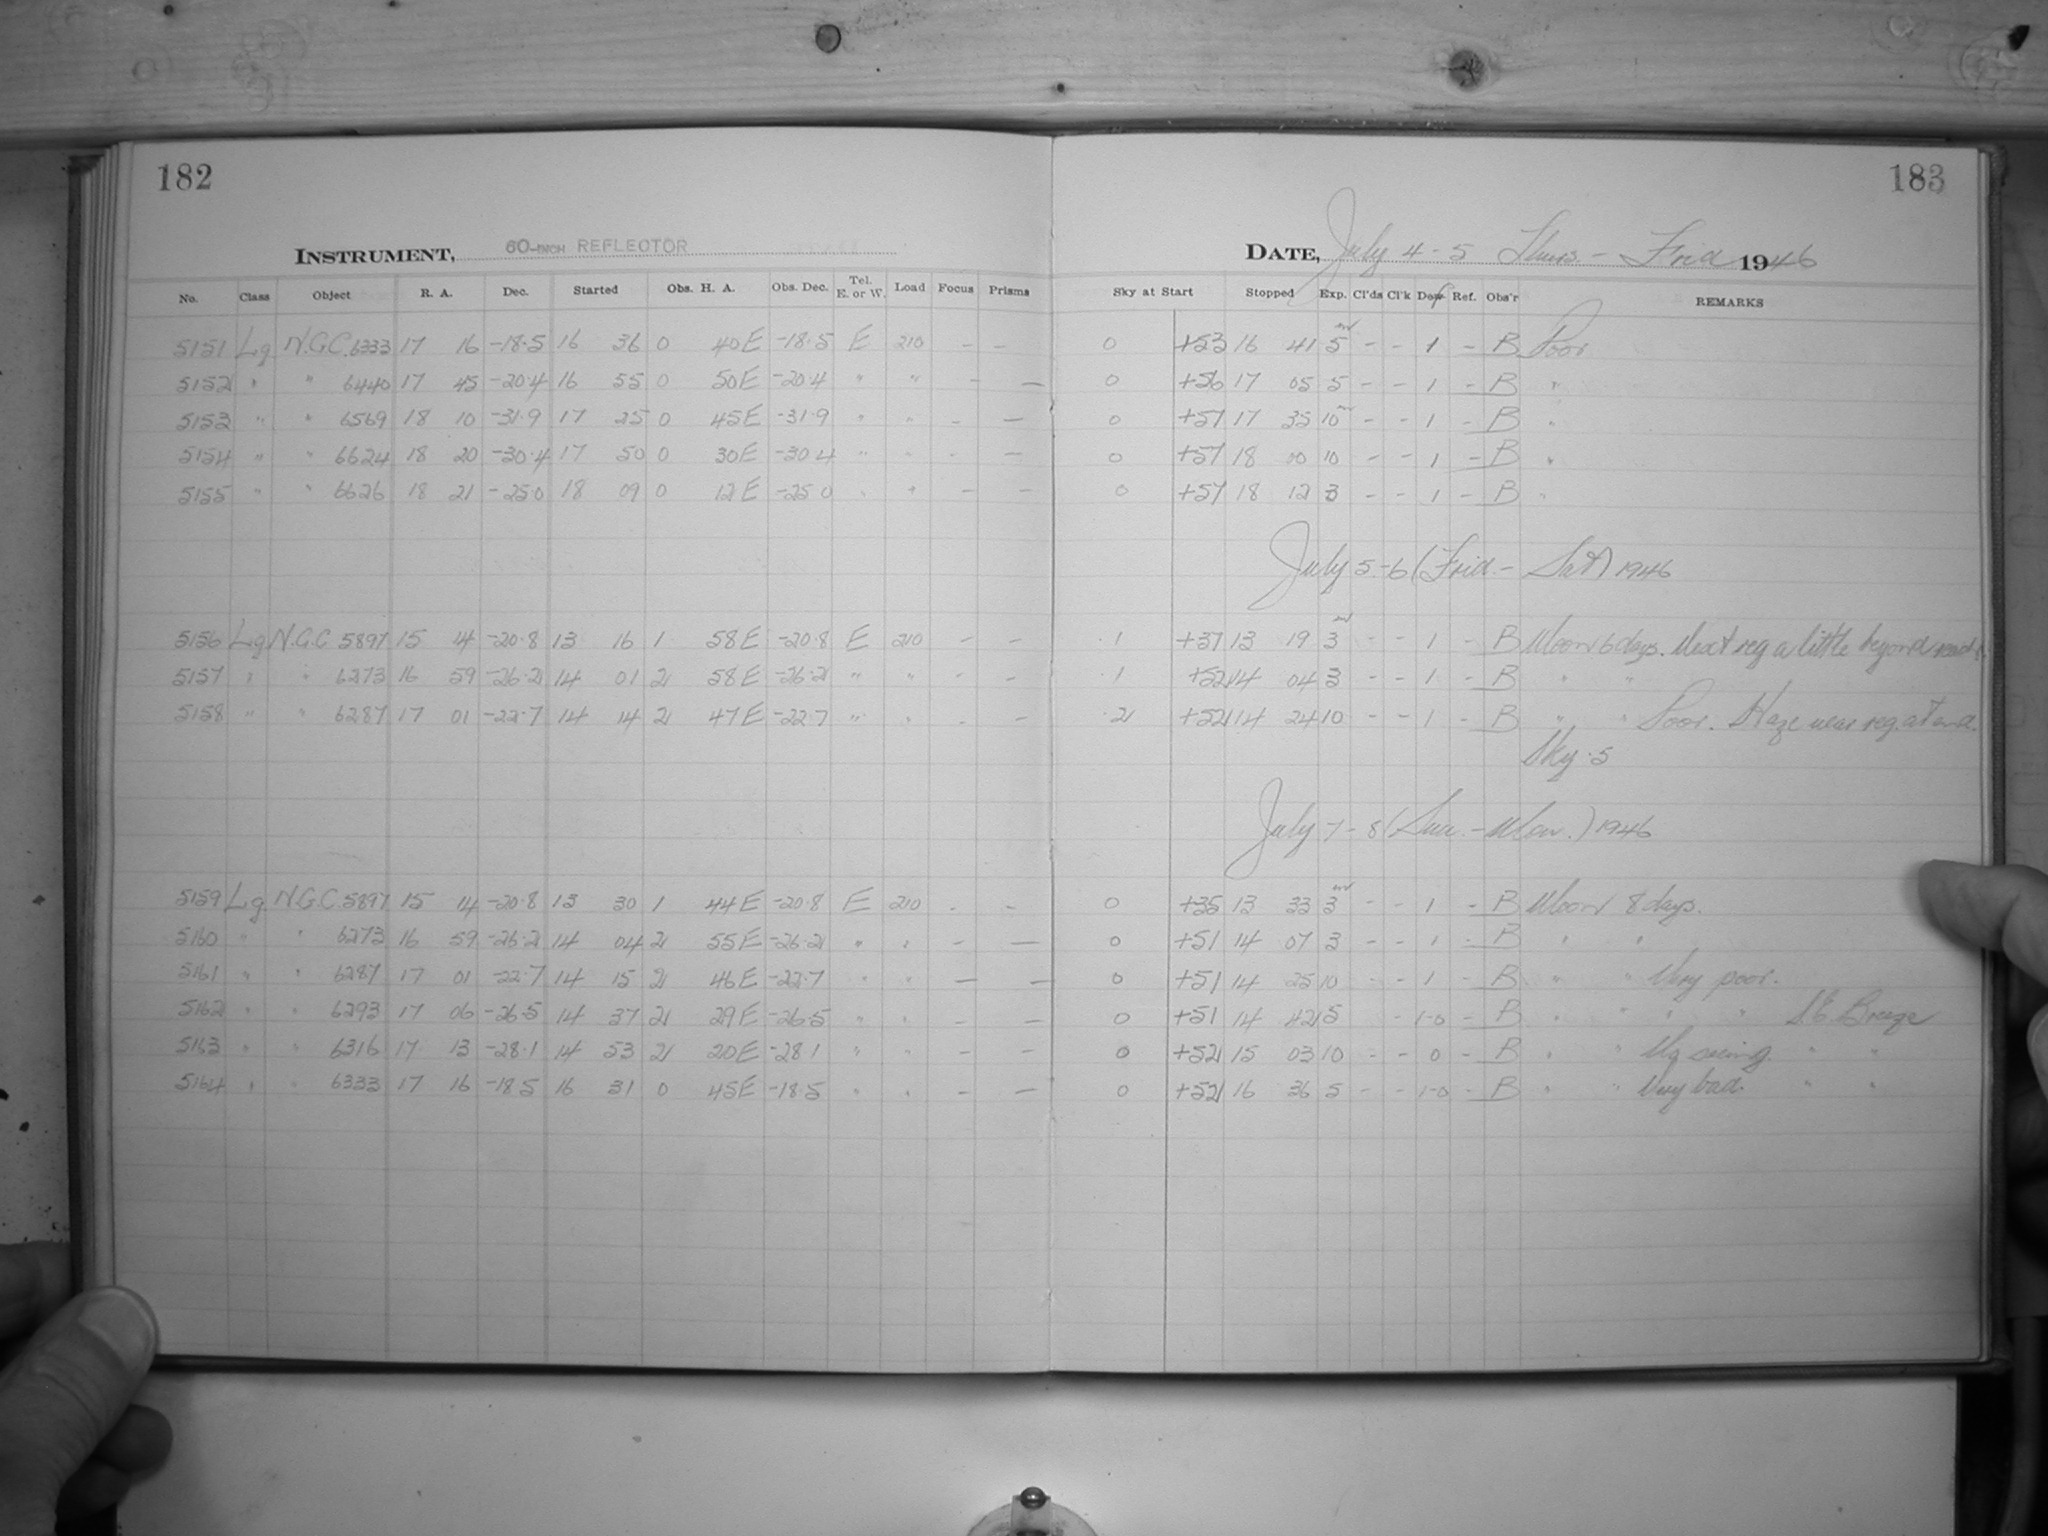 182
183
INSTRUMENT, 60-INCH REFLECTOR
DATE, July 4-5 Thurs. - Frid 1946
No. Class Object R. A. Dec. Started Obs. H. A. Obs. Dec. Tel. E. or W. Load Focus Prisms Sky at Start Stopped Exp. Cl'ds Cl'k Dew Ref. Obs'r REMARKS
5151 Lg N.G.C. 6333 17 16 -18.5 16 36 0 40E -18.5 E 210 - - 0 +53 16 41 5 - - 1 - B Poor
5152 " " 6440 17 45 -20.4 16 55 0 50E -20.4 " " - - 0 +56 17 05 5 - - 1 - B "
5153 " " 6569 18 10 -31.9 17 25 0 45E -31.9 " " - - 0 +57 17 35 10 - - 1 - B "
5154 " " 6624 18 20 -30.4 17 50 0 30E -30.4 " " - - 0 +57 18 00 10 - - 1 - B "
5155 " " 6626 18 21 -25.0 18 09 0 12E -25.0 " " - - 0 +57 18 12 3 - - 1 - B "
July 5-6 (Frid. - Sat) 1946
5156 Lg N.G.C 5897 15 14 -20.8 13 16 1 58E -20.8 E 210 - - .1 +37 13 19 3 - - 1 - B Moon 6 days. Next reg a little beyond
5157 " " 6273 16 59 -26.2 14 01 2 58E -26.2 " " - - .1 +52 14 04 3 - - 1 - B " "
5158 " " 6287 17 01 -22.7 14 14 2 47E -22.7 " " - - .2 +52 14 24 10 - - 1 - B " " Poor. Haze near reg. at end.
Sky .5
July 7-8 (Sun. - Mon.) 1946
5159 Lg N.G.C. 5897 15 14 -20.8 13 30 1 44E -20.8 E 210 - - 0 +35 13 33 3 - - 1 - B Moon 8 days.
5160 " " 6273 16 59 -26.2 14 04 2 55E -26.2 " " - - 0 +51 14 07 3 - - 1 - B " "
5161 " " 6287 17 01 -22.7 14 15 2 46E -22.7 " " - - 0 +51 14 25 10 - - 1 - B " " Very poor.
5162 " " 6293 17 06 -26.5 14 37 2 29E -26.5 " " - - 0 +51 14 42 5 - 1-0 - B " " " " S.E. Breeze
5163 " " 6316 17 13 -28.1 14 53 2 20E -28.1 " " - - 0 +52 15 03 10 - - 0 - B " " seeing. " "
5164 " " 6333 17 16 -18.5 16 31 0 45E -18.5 " " - - 0 +52 16 36 5 - - 1-0 - B " " Very bad. " "